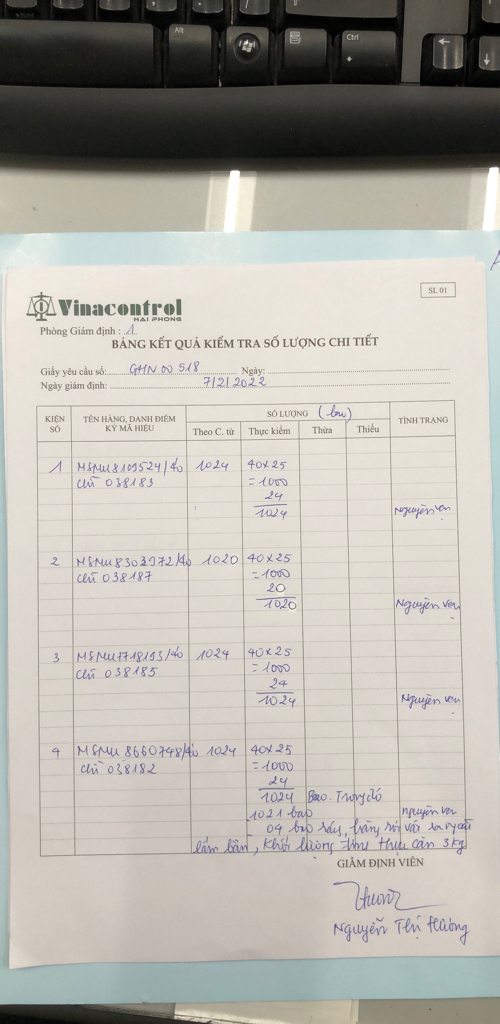 Alt
Ctrl
SL 01
Vinacontrol
HAI PHONG
Phòng Giám định : 1
BẢNG KẾT QUẢ KIỂM TRA SỐ LƯỢNG CHI TIẾT
Giấy yêu cầu số: GHN 00 518 Ngày:
Ngày giám định: 7/2/2022
KIỆN SỐ TÊN HÀNG, DANH ĐIỂM KÝ MÃ HIỆU SỐ LƯỢNG (bao) TÌNH TRẠNG
Theo C. từ Thực kiểm Thừa Thiếu
1 MSMU8109524/40 1024 40x25
chì 038183 = 1000
24
1024 Nguyên vẹn
2 MSMU8303972/40 1020 40x25
chì 038187 = 1000
20
1020 Nguyên vẹn
3 MSMU7718193/40 1024 40x25
chì 038185 = 1000
24
1024 Nguyên vẹn
4 MSMU8660748/40 1024 40x25
chì 038182 = 1000
24
1024 Bao. Trong đó
1021 bao nguyên vẹn
bao rách, hàng rơi vãi
lấm bẩn, Khối lượng thực cân 3kg
GIÁM ĐỊNH VIÊN
Nguyễn Thị Hương